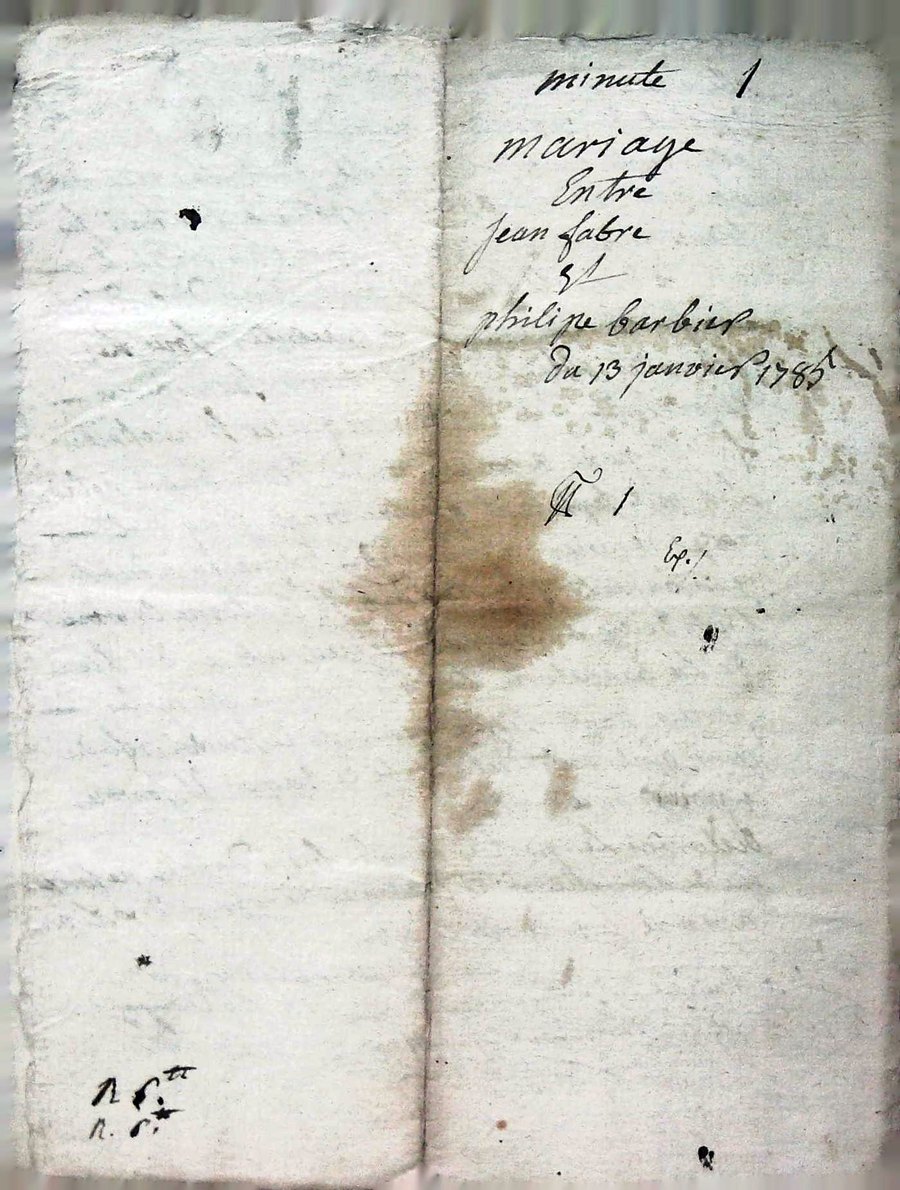 minute 1
mariage
Entre
jean fabre
Et
philipe barbier
du 13 janvier 1785
N 1
Ex.
R 6.tt
R. 6.tt